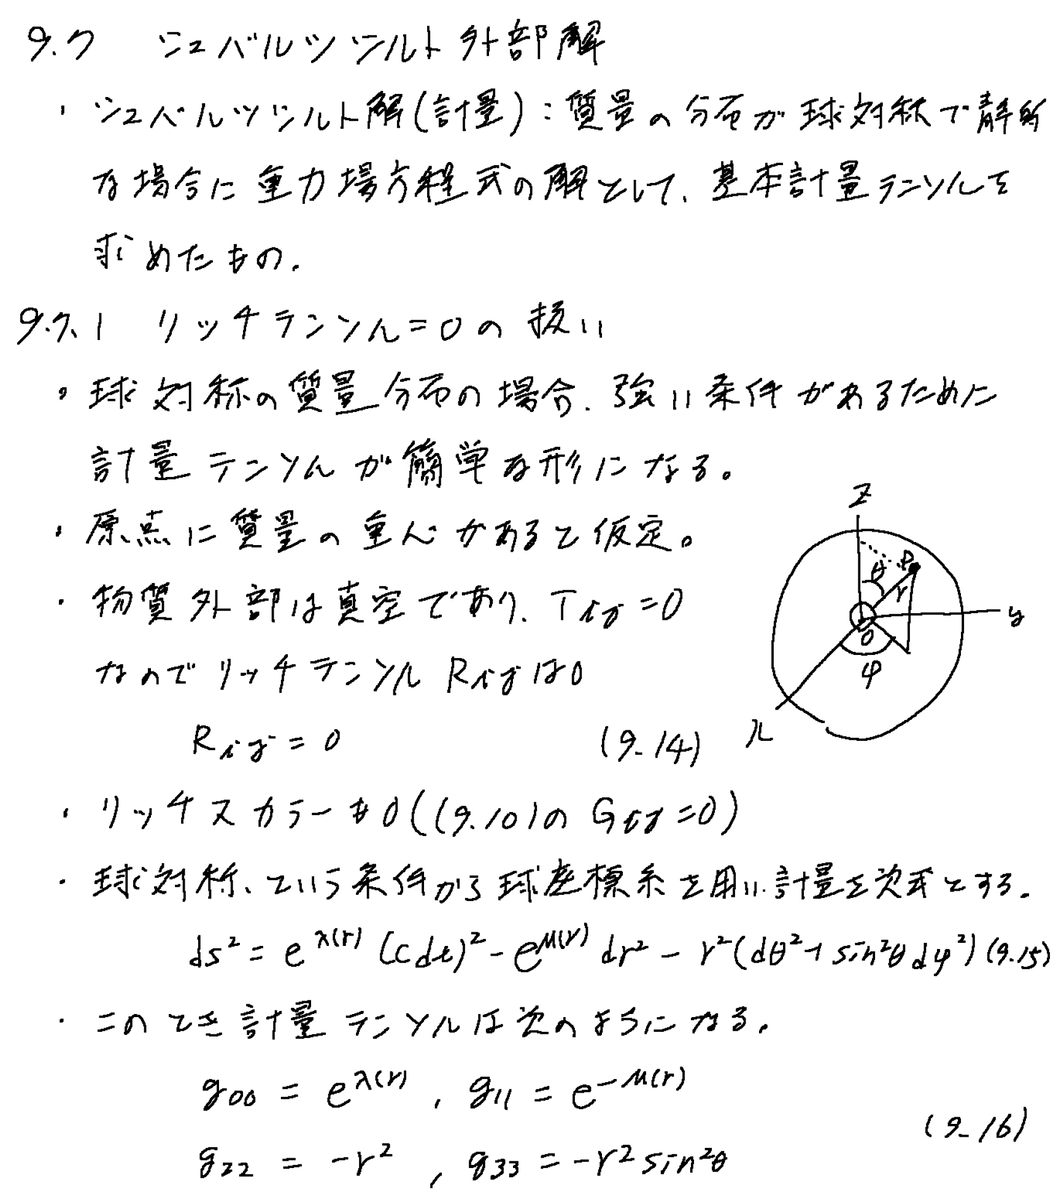 9.7 シュバルツシルト外部解
・シュバルツシルト解(計量):質量の分布が球対称で静的
な場合に重力場方程式の解として、基本計量テンソルを
求めたもの.
9.7.1 リッチテンソル=0の扱い
・球対称の質量分布の場合、強い条件があるために
計量テンソルが簡単な形になる。
・原点に質量の重心があると仮定。
・物質外部は真空であり、Tij=0
なのでリッチテンソルRijは0
Rij = 0 (9.14)
z
P
θ
r
y
0
φ
x
・リッチスカラーも0((9.10)のGij=0)
・球対称、という条件から球座標系を用い計量を次式とする.
ds² = e^λ(r) (cdt)² - e^μ(r) dr² - r²(dθ²+sin²θdφ²) (9.15)
・このとき計量テンソルは次のようになる.
g00 = e^λ(r) , g11 = e^-μ(r)
(9.16)
g22 = -r² , g33 = -r² sin²θ